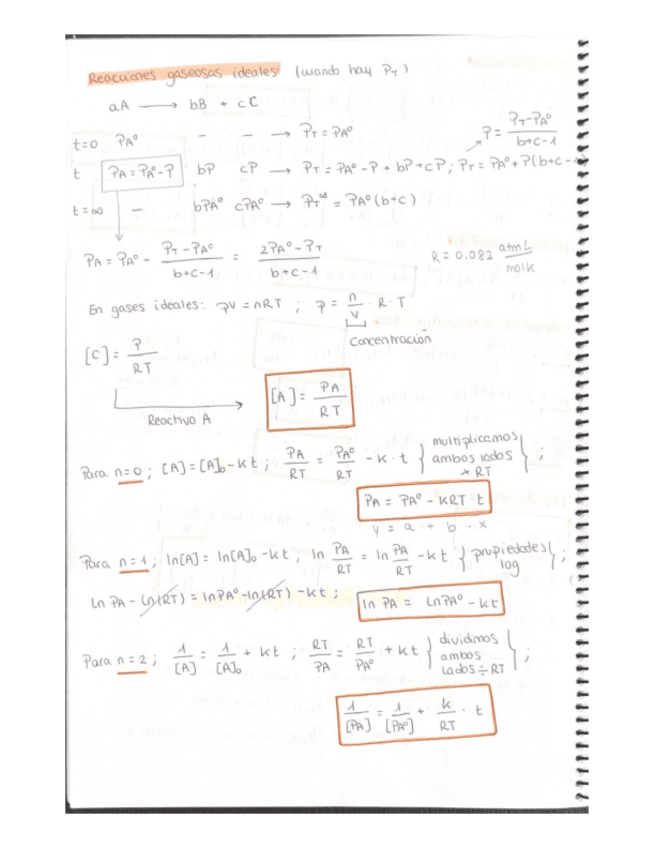 Reacciones gaseosas ideales (cuando hay PT)
aA → bB + cC
t=0 PA⁰ - - → PT = PA⁰
P = (PT-PA⁰)/(b+c-1)
t PA = PA⁰-P bP cP → PT = PA⁰-P + bP+cP ; PT = PA⁰+P(b+c-1)
t=∞ - bPA⁰ cPA⁰ → PT^∞ = PA⁰(b+c)
PA = PA⁰ - (PT-PA⁰)/(b+c-1) = (2PA⁰-PT)/(b+c-1)
R = 0,082 atmL/molK
En gases ideales: PV = nRT ; P = n/V · R · T
Concentración
[C] = P/RT
Reactivo A
[A] = PA/RT
Para n=0 ; [A] = [A]₀ - kt ; PA/RT = PA⁰/RT - k·t } multiplicamos ambos lados × RT } ;
PA = PA⁰ - kRT · t
y = a + b · x
Para n=1 ; ln[A] = ln[A]₀ - kt ; ln PA/RT = ln PA/RT - kt { propiedades log } ;
Ln PA - Ln(RT) = lnPA⁰ - ln(RT) - kt ;
ln PA = LnPA⁰ - kt
Para n=2 ; 1/[A] = 1/[A]₀ + kt ; RT/PA = RT/PA⁰ + kt } dividimos ambos lados ÷ RT } ;
1/[PA] = 1/[PA⁰] + k/RT · t